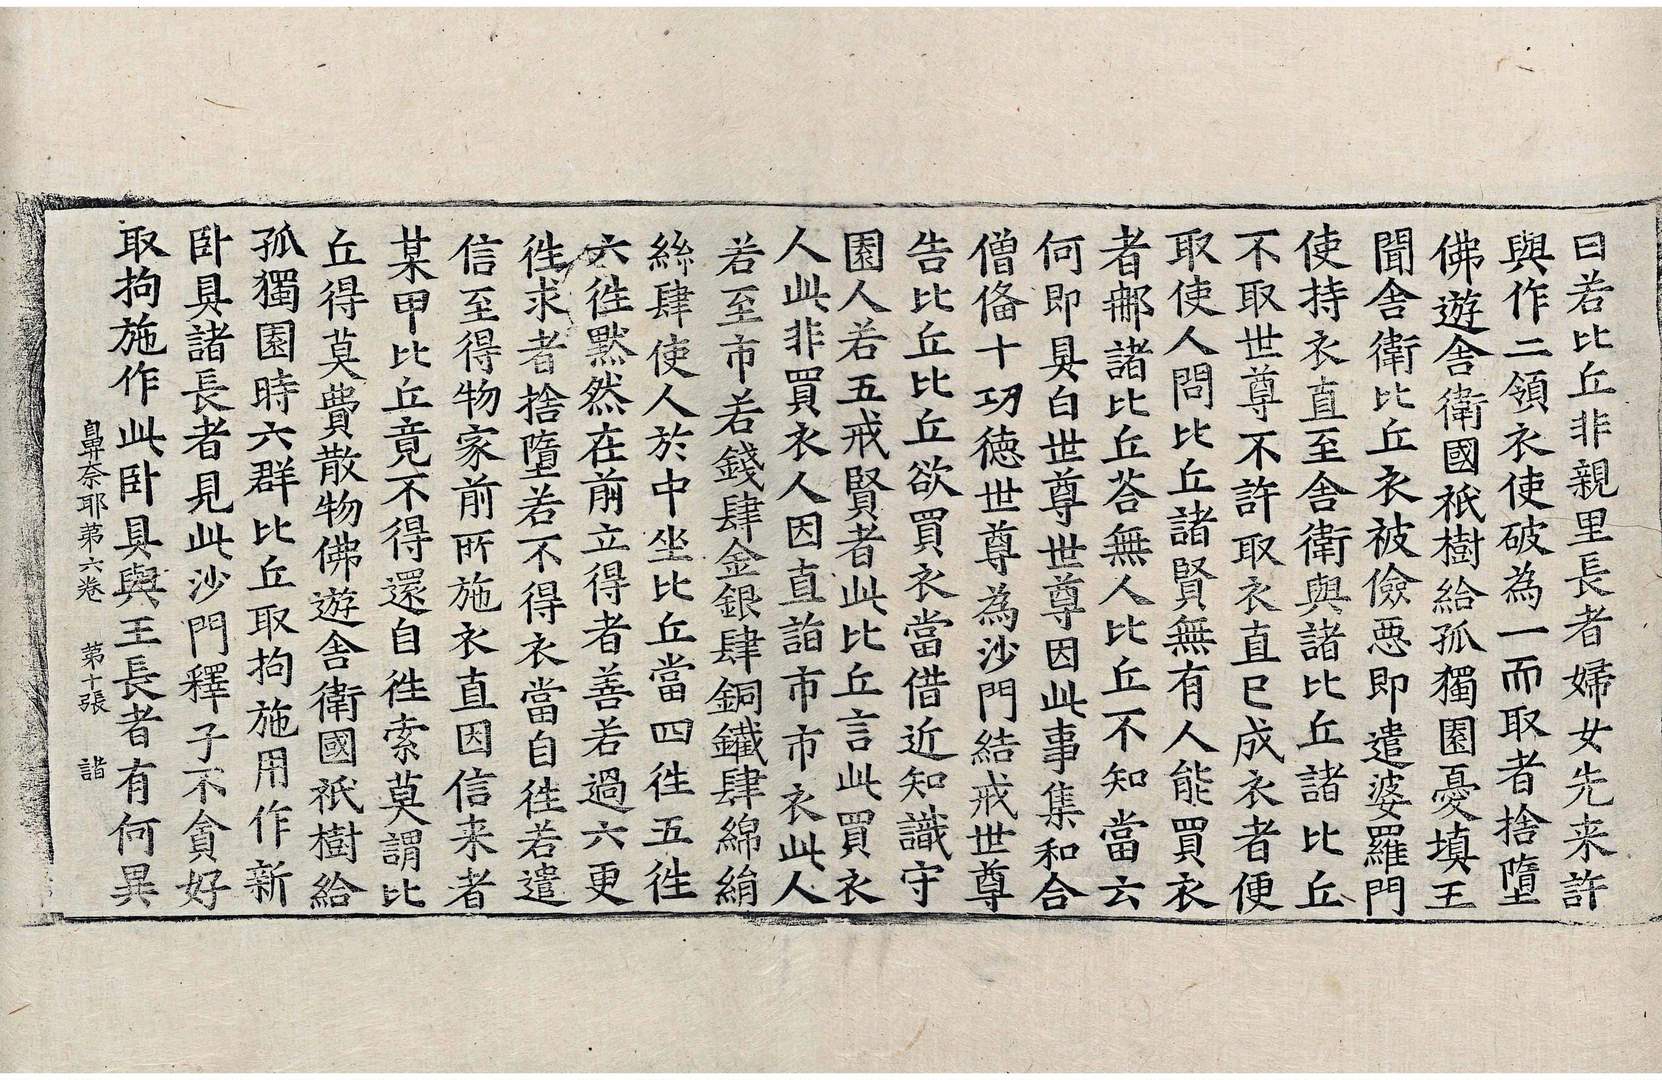 曰若比丘非親里長者婦女先来許
與作二領衣使破為一而取者捨墮
佛遊舎衛國祇樹給孤獨園憂填王
聞舎衛比丘衣被儉惡即遣婆羅門
使持衣直至舎衛與諸比丘諸比丘
不取世尊不許取衣直已成衣者便
取使人問比丘諸賢無有人能買衣
者耶諸比丘荅無人比丘不知當云
何即具白世尊世尊因此事集和合
僧俻十功德世尊為沙門結戒世尊
告比丘比丘欲買衣當借近知識守
園人若五戒賢者此比丘言此買衣
人此非買衣人因直詣市市衣此人
若至市若錢肆金銀肆銅鐵肆綿絹
絲肆使人於中坐比丘當四徃五徃
六徃黙然在前立得者善若過六更
徃求者捨墮若不得衣當自徃若遣
信至得物家前所施衣直因信来者
某甲比丘竟不得還自徃索莫謂比
丘得莫費散物佛遊舎衛國祇樹給
孤獨園時六群比丘取拘施用作新
卧具諸長者見此沙門釋子不貪好
取拘施作此卧具與王長者有何異
鼻奈耶第六卷 第十張 諧